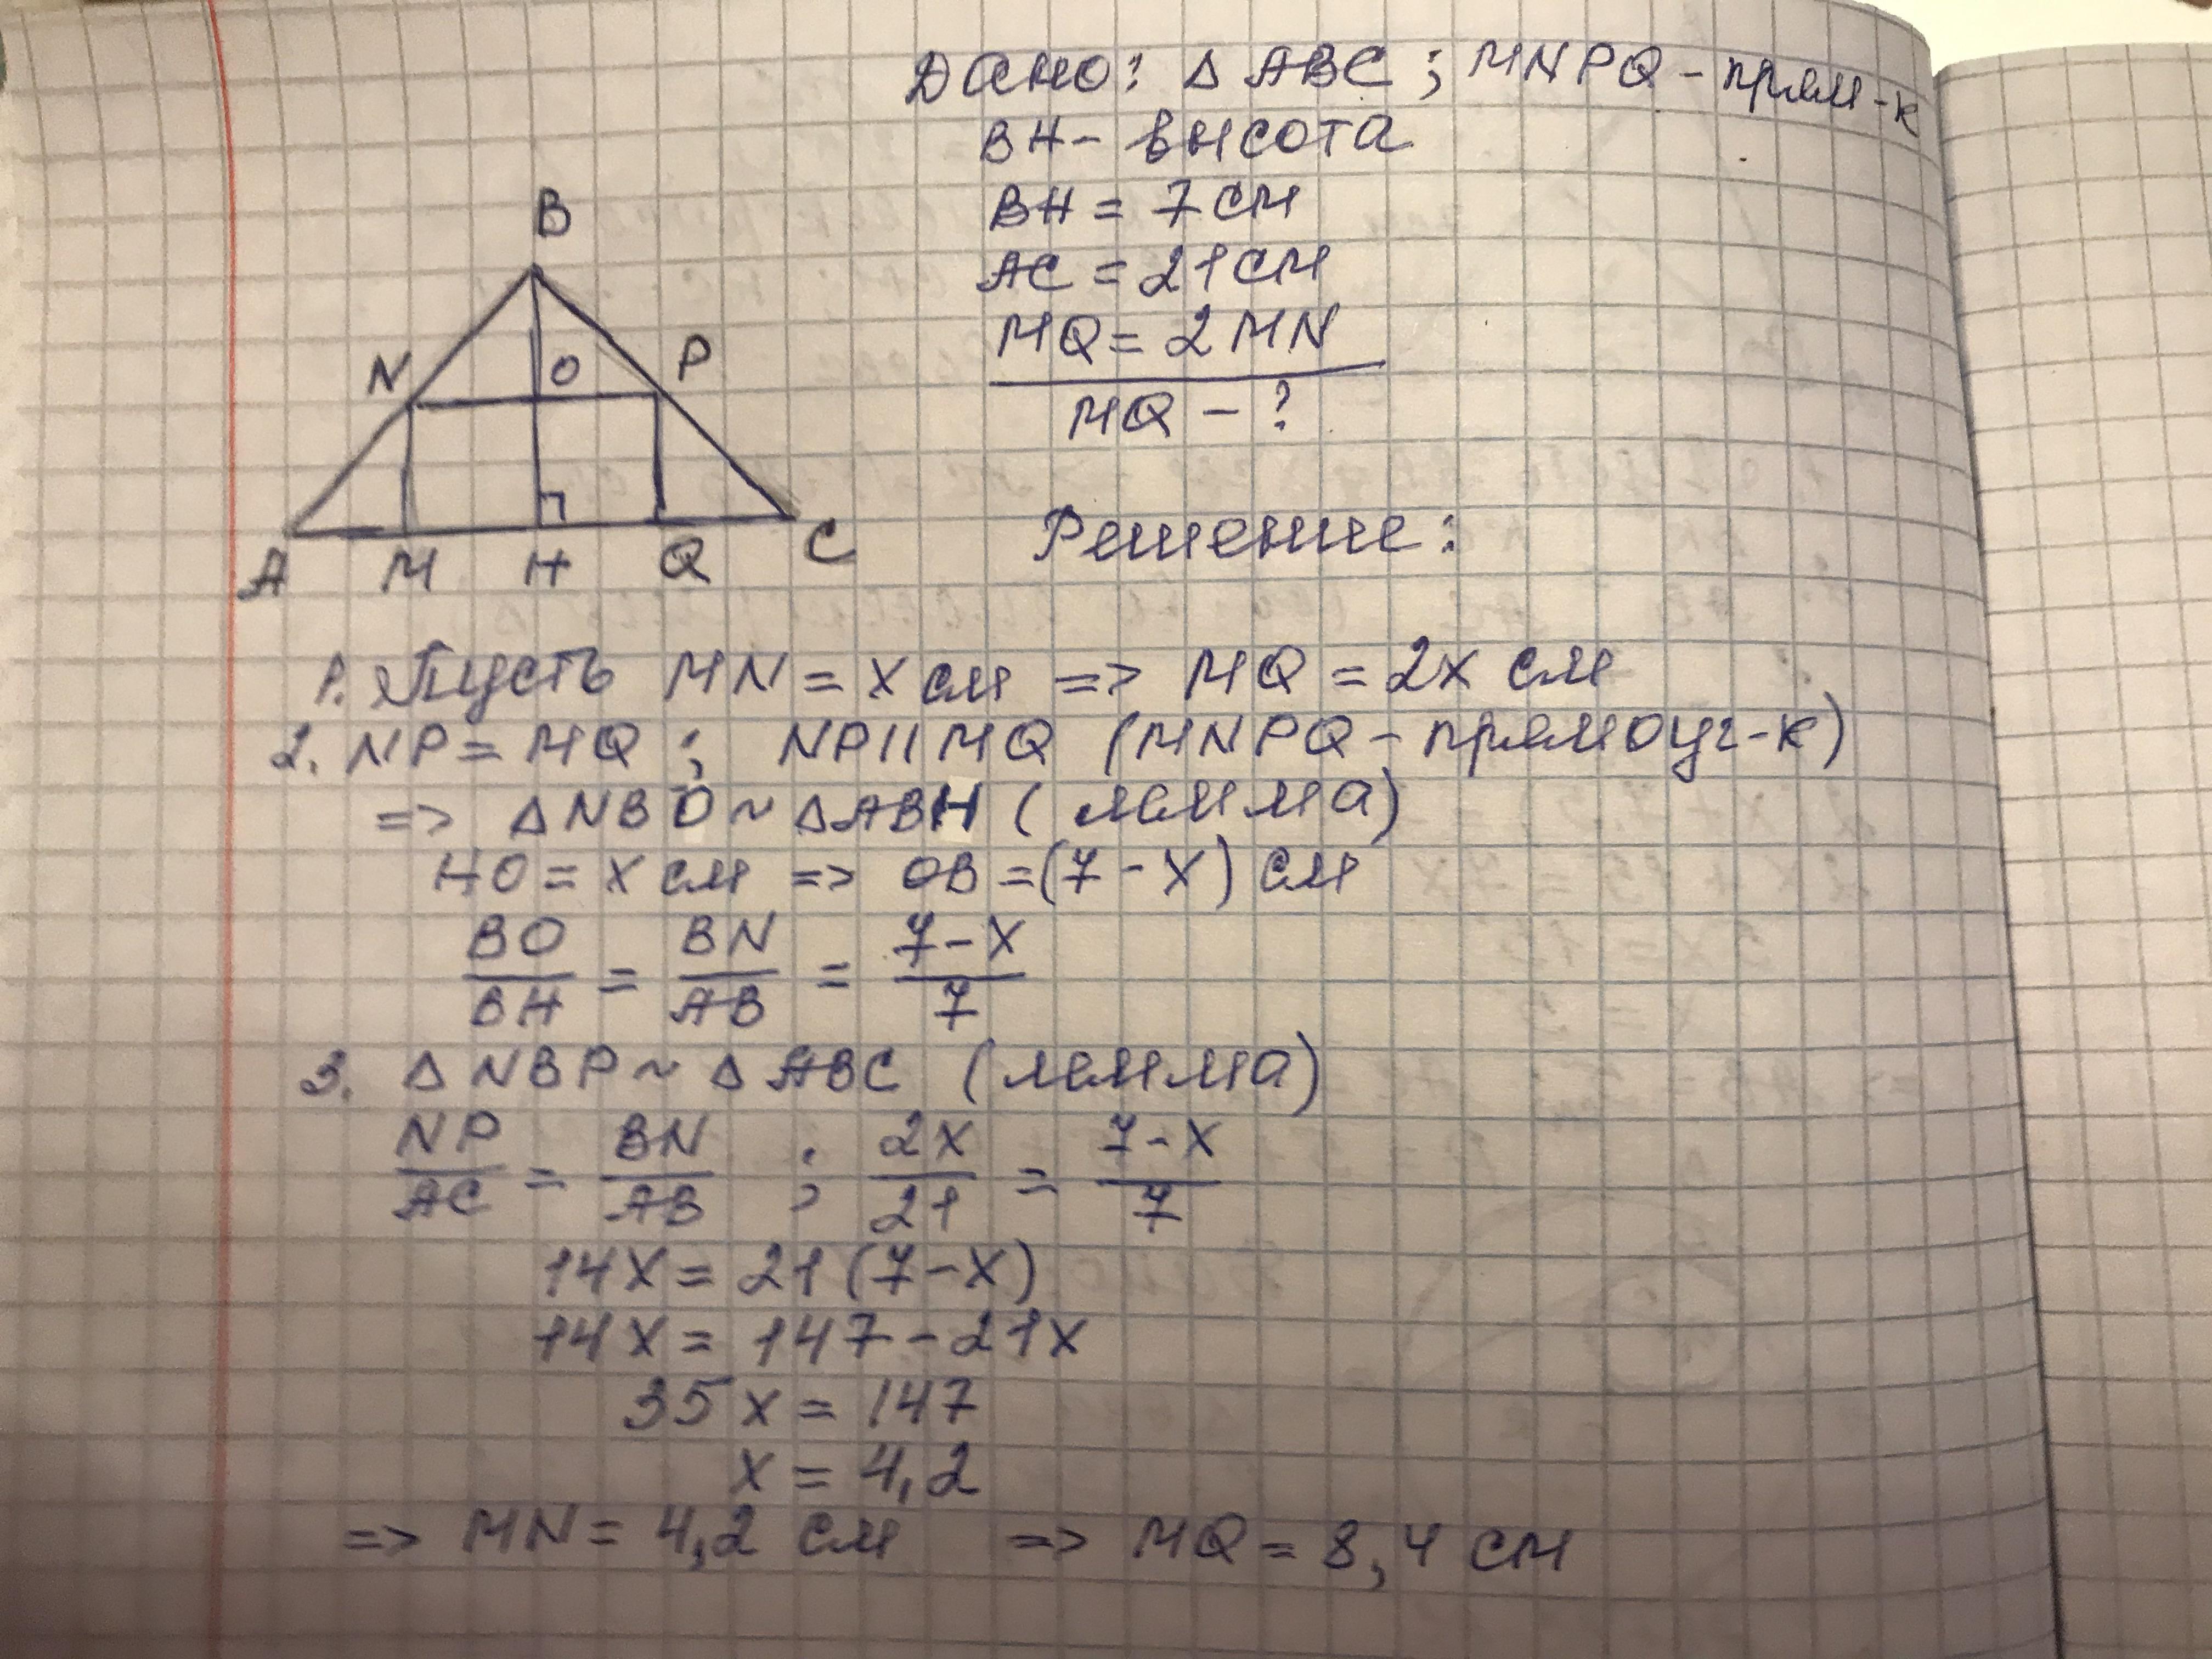 Дано: △ ABC; MNPQ - прям-к
BH - высота
BH = 7 см
AC = 21 см
MQ = 2 MN
MQ - ?
B
N O P
A M H Q C
Решение:
1. Пусть MN = x см => MQ = 2x см
2. NP = MQ ; NP || MQ (MNPQ - прямоуг-к)
=> △ NBO ~ △ ABH (лемма)
HO = x см => OB = (7 - x) см
BO/BH = BN/AB = (7-x)/7
3. △ NBP ~ △ ABC (лемма)
NP/AC = BN/AB ; 2x/21 = (7-x)/7
14x = 21(7-x)
14x = 147 - 21x
35x = 147
x = 4,2
=> MN = 4,2 см => MQ = 8,4 см